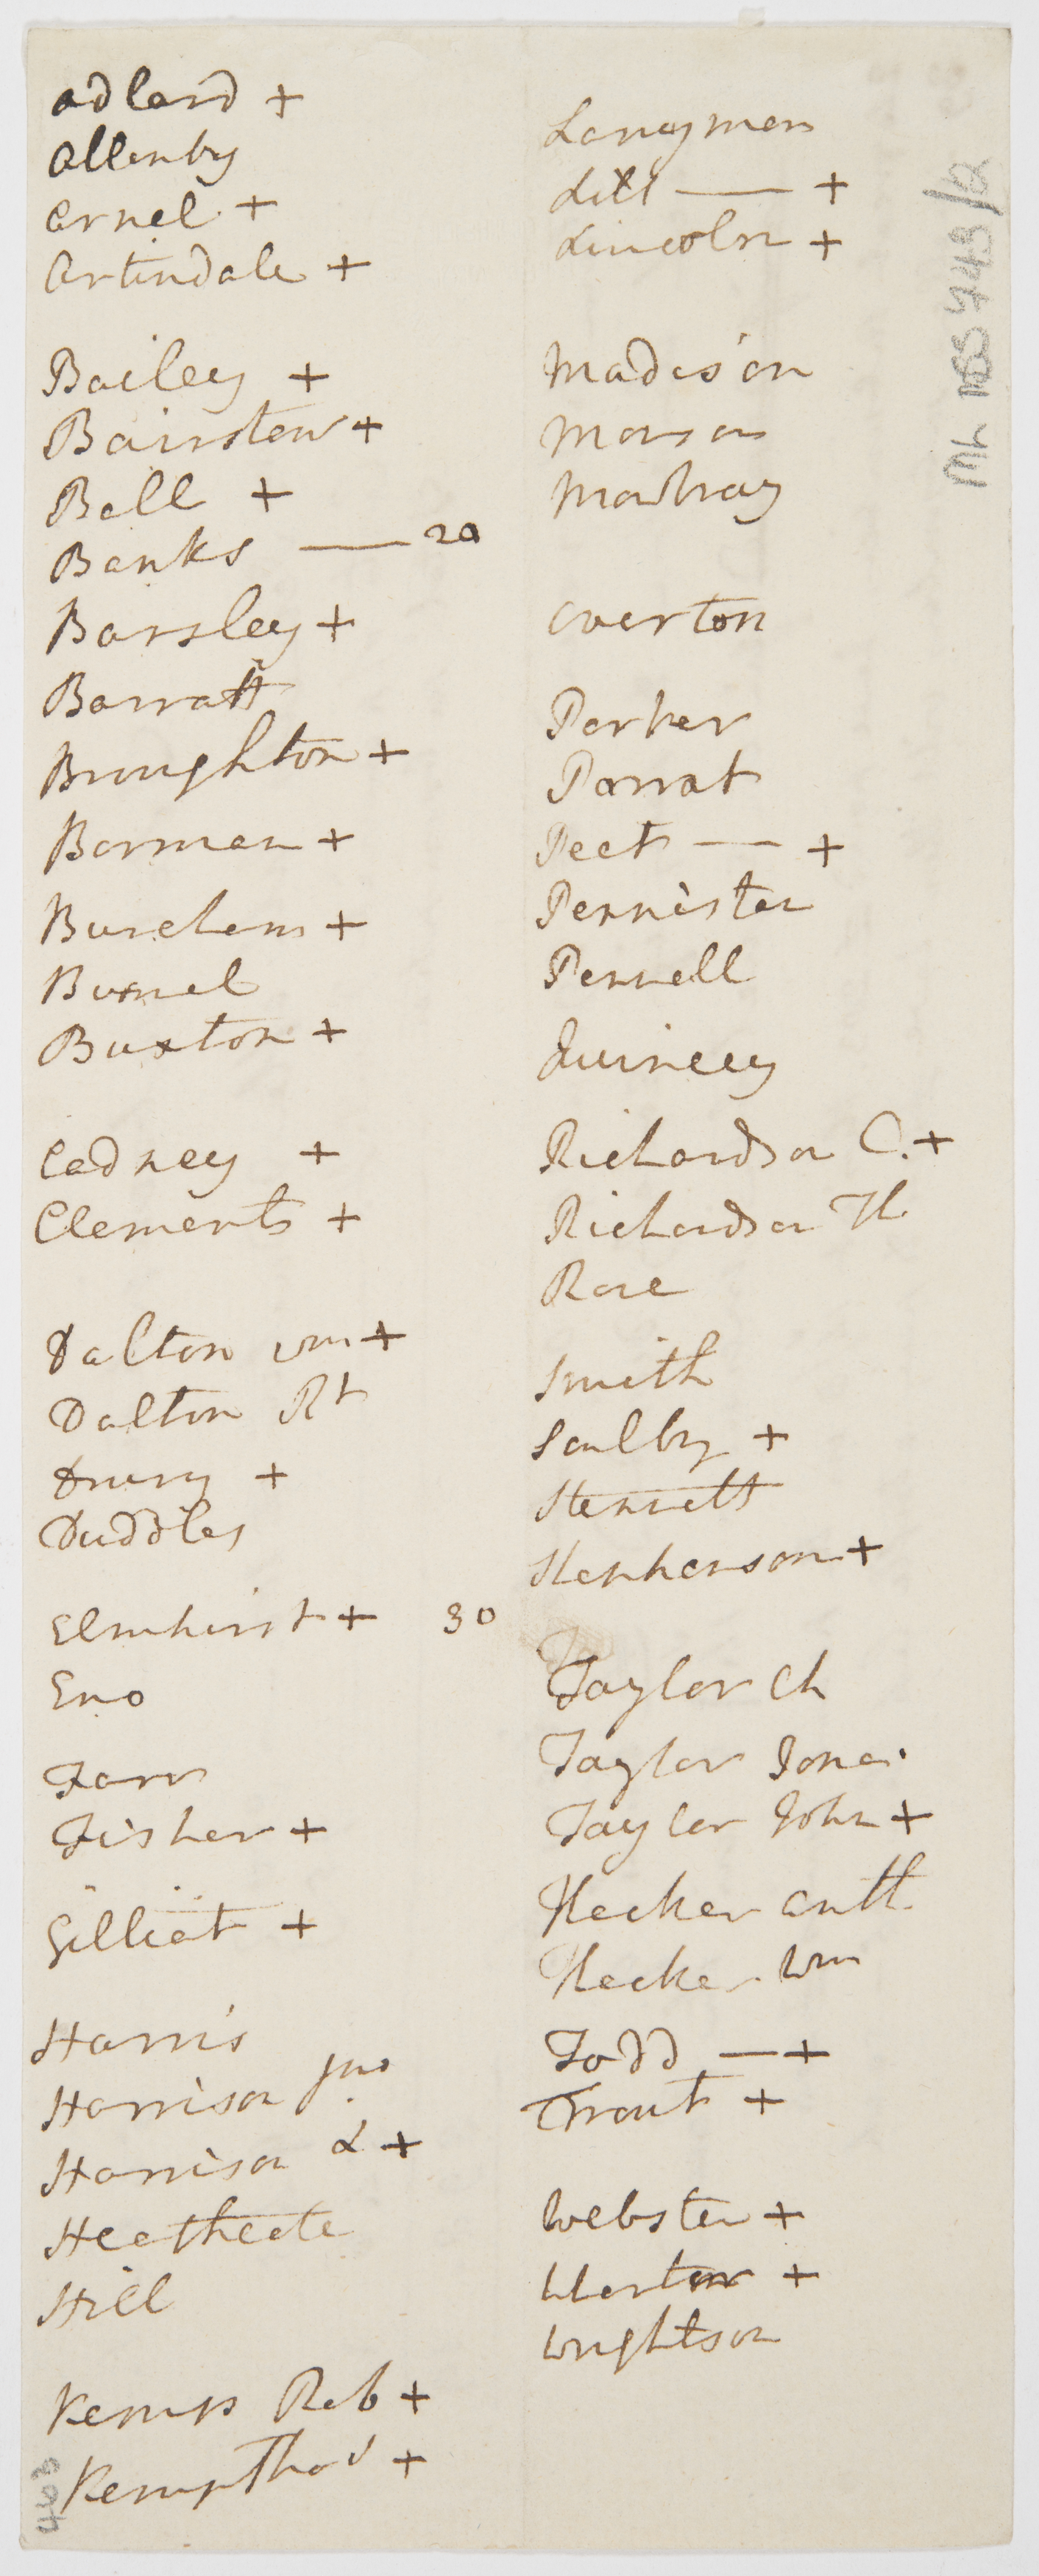 Adlard +
Allenby
Arnel +
Artindale +
Bailey +
Bairstow +
Bell +
Banks — 20
Barsley +
Barratt
Broughton +
Borman +
Burcham +
Burnel
Buxton +
Cadney +
Clements +
Dalton Wm +
Dalton Rt
Drury +
Duddles
Elmhirst + 30
Eno
Farr
Fisher +
Gilliat +
Harris
Harrison Jno
Harrison L +
Heathcote
Hill
Kemp Rob +
Kemp Thos +
Langman
Lill — +
Lincoln +
Madison
Mawbray
Overton
Parker
Parrat
Peet — +
Pennister
Pennell
Quincey
Richardson C. +
Richardson Th
Rose
Smith
Saulby +
Stennett
Stephenson +
Taylor Ch
Taylor Jona.
Taylor John +
Thecker Anth.
Thecker Wm
Todd — +
Trout +
Webster +
Weston +
Wrightson
403